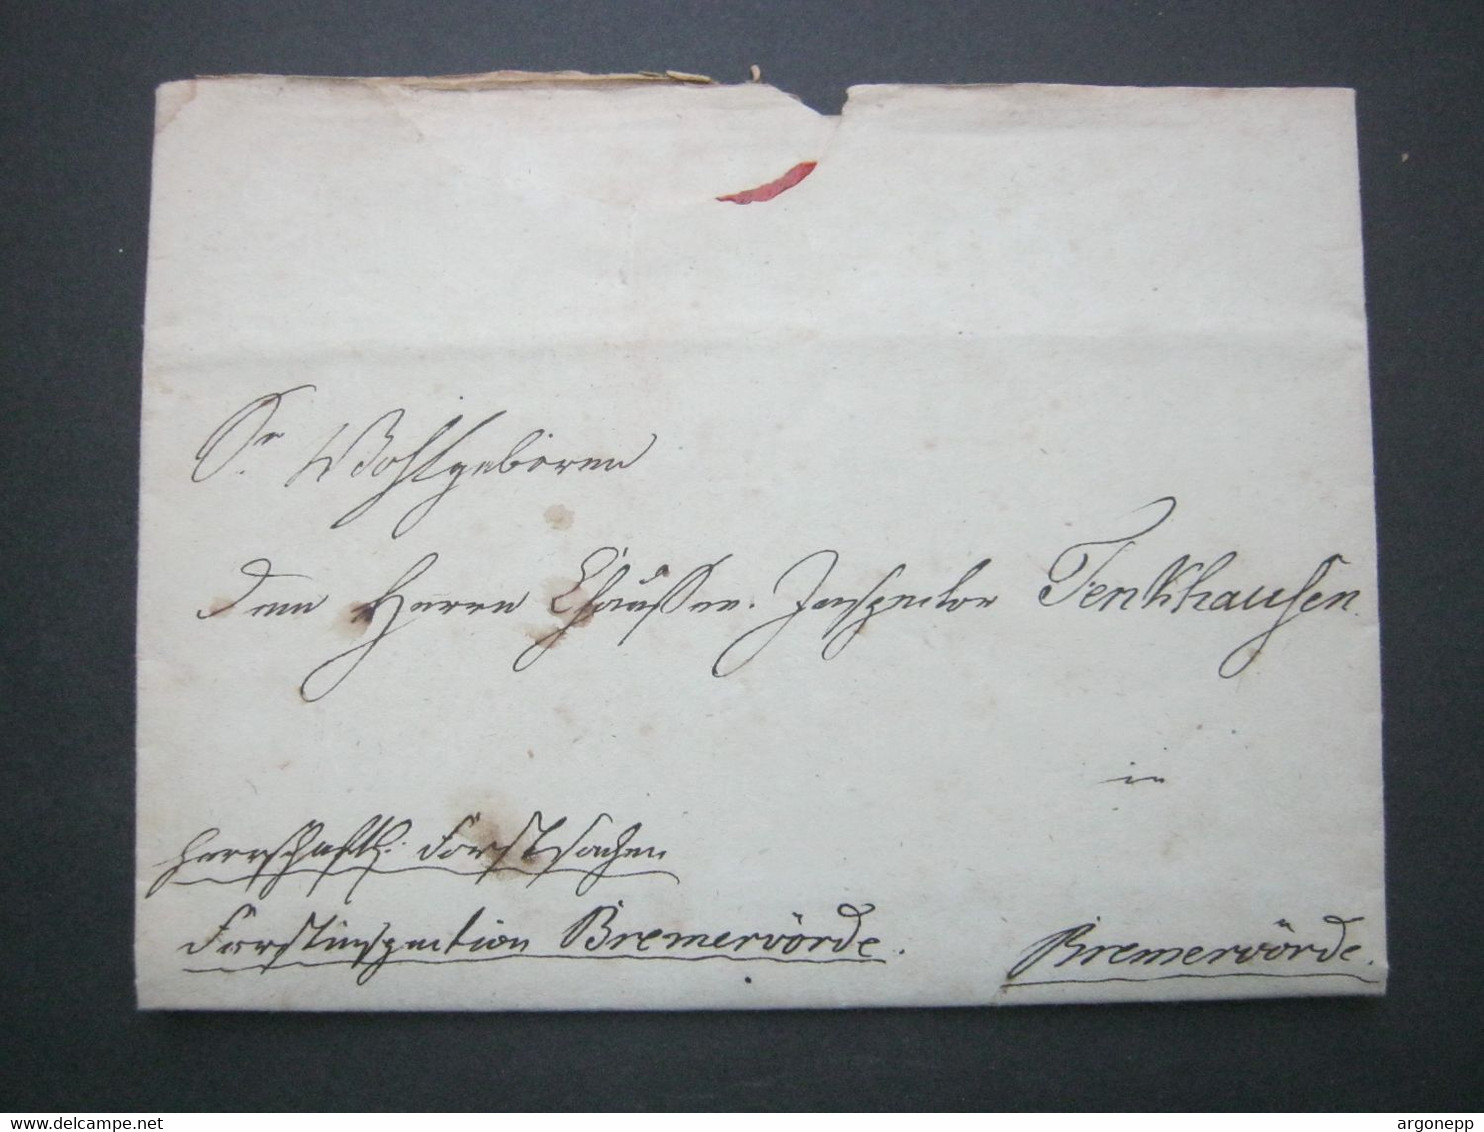 Sr Wohlgeboren
dem Herrn Chaussee. Inspector Tenkhausen
in
herrschaftl. Forstsachen
Forstinspection Bremervörde.
Bremervörde.
www.delcampe.net
argonepp